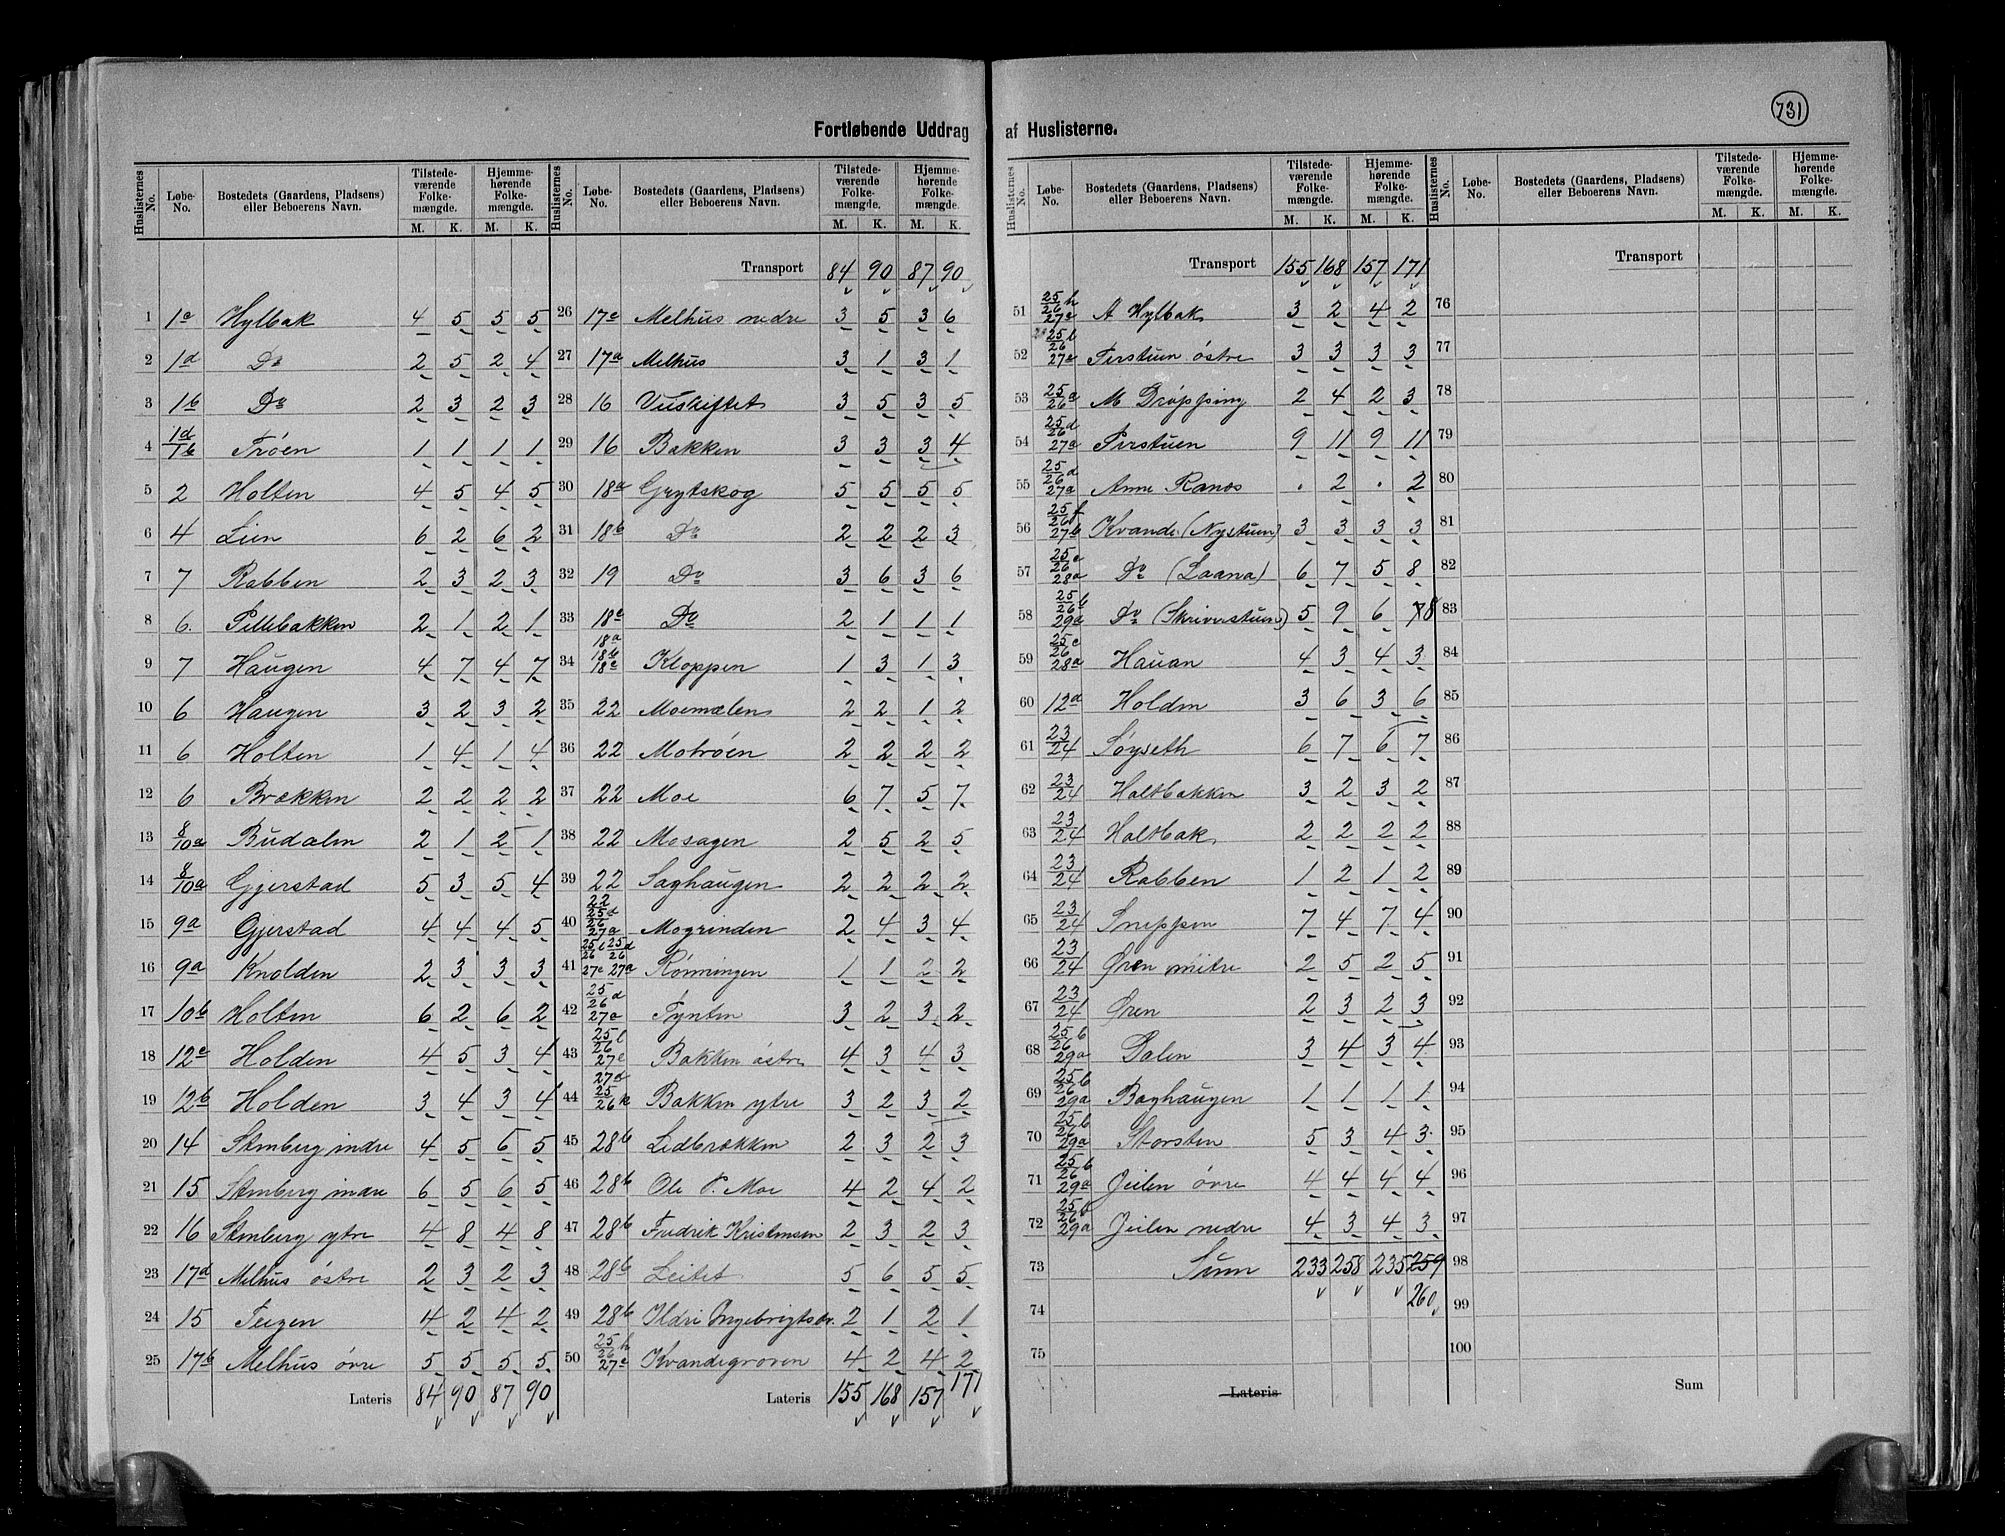 731
Fortløbende Uddrag af Huslisterne.
Huslisternes No. Løbe-No. Bostedets (Gaardens, Pladsens) eller Beboerens Navn. Tilstedeværende Folkemængde. M. K. Hjemmehørende Folkemængde. M. K.
1 1c Hylbak 4 5 5 5
2 1d Do 2 5 2 4
3 1b Do 2 3 2 3
4 1d/1b Trøen 1 1 1 1
5 2 Holten 4 5 4 5
6 4 Lien 6 2 6 2
7 7 Rabben 2 3 2 3
8 6 Pillebakken 2 1 2 1
9 7 Haugen 4 7 4 7
10 6 Haugen 3 2 3 2
11 6 Holten 1 4 1 4
12 6 Brækken 2 2 2 2
13 8/10a Budalen 2 1 2 1
14 8/10a Gjerstad 5 3 5 4
15 9a Gjerstad 4 4 4 5
16 9a Knolden 2 3 3 3
17 10b Holten 6 2 6 2
18 12c Holden 4 5 3 4
19 12b Holden 3 4 3 4
20 14 Stenberg indre 4 5 6 5
21 15 Stenberg indre 6 5 6 5
22 16 Stenberg ytre 4 8 4 8
23 17d Melhus østre 2 3 2 3
24 15 Teigen 4 2 4 2
25 17b Melhus øvre 5 5 5 5
Lateris 84 90 87 90
Huslisternes No. Løbe-No. Bostedets (Gaardens, Pladsens) eller Beboerens Navn. Tilstedeværende Folkemængde. M. K. Hjemmehørende Folkemængde. M. K.
Transport 84 90 87 90
26 17c Melhus nedre 3 5 3 6
27 17a Melhus 3 1 3 1
28 16 3 5 3 5
29 16 Bakken 3 3 3 4
30 18a Grytskog 5 5 5 5
31 18b Do 2 2 2 3
32 19 Do 3 6 3 6
33 18c Do 2 1 1 1
34 18a 18b 18c Kloppen 1 3 1 3
35 22 Moemælen 2 2 1 2
36 22 Motrøen 2 2 2 2
37 22 Moe 6 7 5 7
38 22 Mosagen 2 5 2 5
39 22 Saghaugen 2 2 2 2
40 22 25d 26 27a Mogrinden 2 4 3 4
41 25 25d 26 26 27c 27a Rønningen 1 1 2 2
42 25 26d 27a Tynten 3 2 3 2
43 25l 26 27c Bakken østre 4 3 4 3
44 27d 25 26k Bakken ytre 3 2 3 2
45 28b Lidbrækken 2 3 2 3
46 28b Ole P. Moe 4 2 4 2
47 28b Fredrik Kristensen 2 3 2 3
48 28b Leitet 5 6 5 5
49 28b Ildri Ingebrigtsdr. 2 1 2 1
50 25h 26 27c Kvandegroven 4 2 4 2
Lateris 155 168 157 171
Huslisternes No. Løbe-No. Bostedets (Gaardens, Pladsens) eller Beboerens Navn. Tilstedeværende Folkemængde. M. K. Hjemmehørende Folkemængde. M. K.
Transport 155 168 157 171
51 25h 26 27c A Hylbak 3 2 4 2
52 25l 26 27c Pirstuen østre 3 3 3 3
53 25a 26 M Drøpping 2 4 2 3
54 25d 26 27a Pirstuen 9 11 9 11
55 25d 26 27a Anne Ranæs . 2 . 2
56 25f 26 27b Kvande (Nystuen) 3 3 3 3
57 25c 26 28a Do (Laana) 6 7 5 8
58 25b 26 29a Do (Skriverstuen) 5 9 6 8
59 25c 26 28a Hauan 4 3 4 3
60 12a Holden 3 6 3 6
61 23/24 Søyseth 6 7 6 7
62 23/24 Holtbakken 3 2 3 2
63 23/24 Holtbak 2 2 2 2
64 23/24 Rabben 1 2 1 2
65 23/24 Sneppen 7 4 7 4
66 23/24 Øren mitre 2 5 2 5
67 23/24 Øren 2 3 2 3
68 25b 26 29a Dalen 3 4 3 4
69 25b 26 29a Baghaugen 1 1 1 1
70 25b 26 29a Storsten 5 3 4 3
71 25b 26 29a Jeilen øvre 4 4 4 4
72 25b 26 29a Jeilen nedre 4 3 4 3
73 Sum 233 258 235 259
260
74
75
Lateris
Huslisternes No. Løbe-No. Bostedets (Gaardens, Pladsens) eller Beboerens Navn. Tilstedeværende Folkemængde. M. K. Hjemmehørende Folkemængde. M. K.
Transport
76
77
78
79
80
81
82
83
84
85
86
87
88
89
90
91
92
93
94
95
96
97
98
99
100
Sum